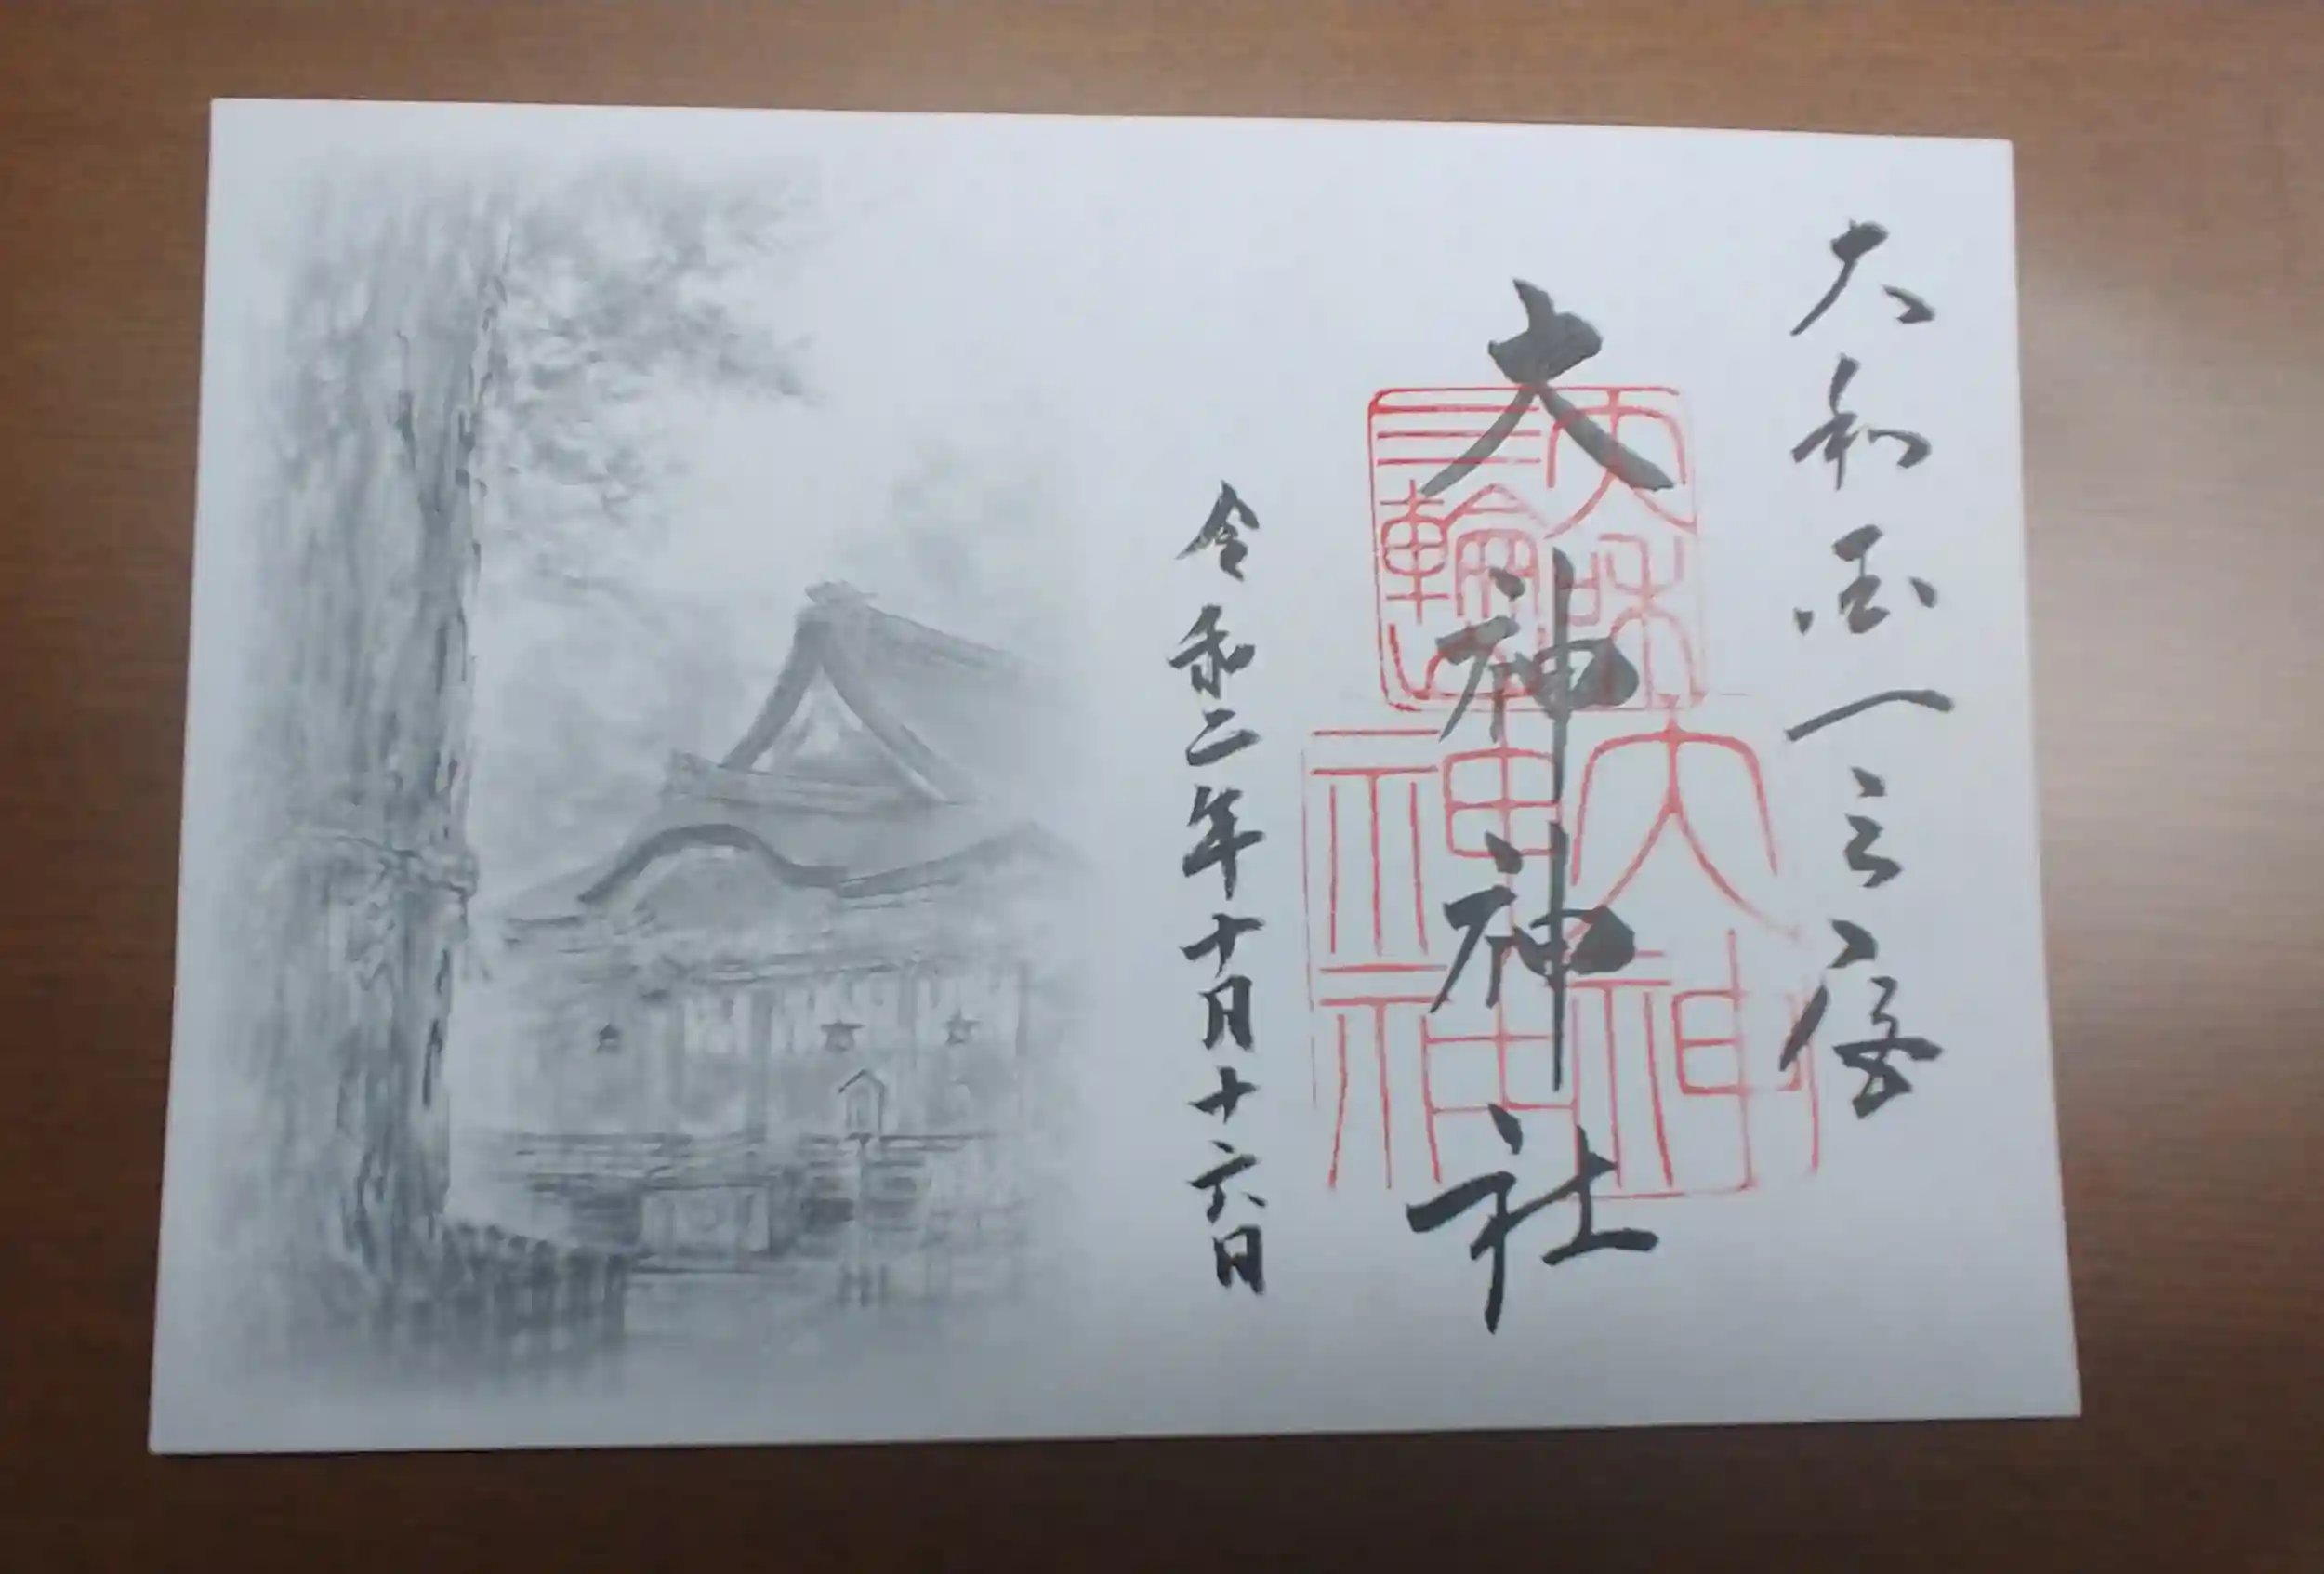 大和国一之宮
大神神社
大和
三輪山
大神
神社
令和二年十月十六日